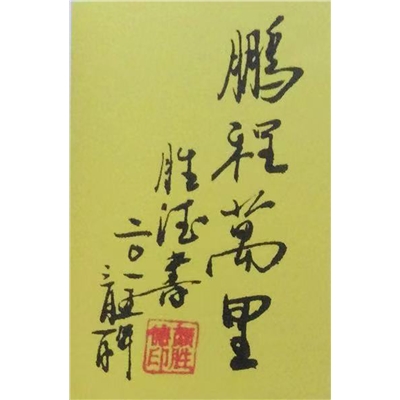 鵬程萬里
胜德書
二〇一
胜
德印